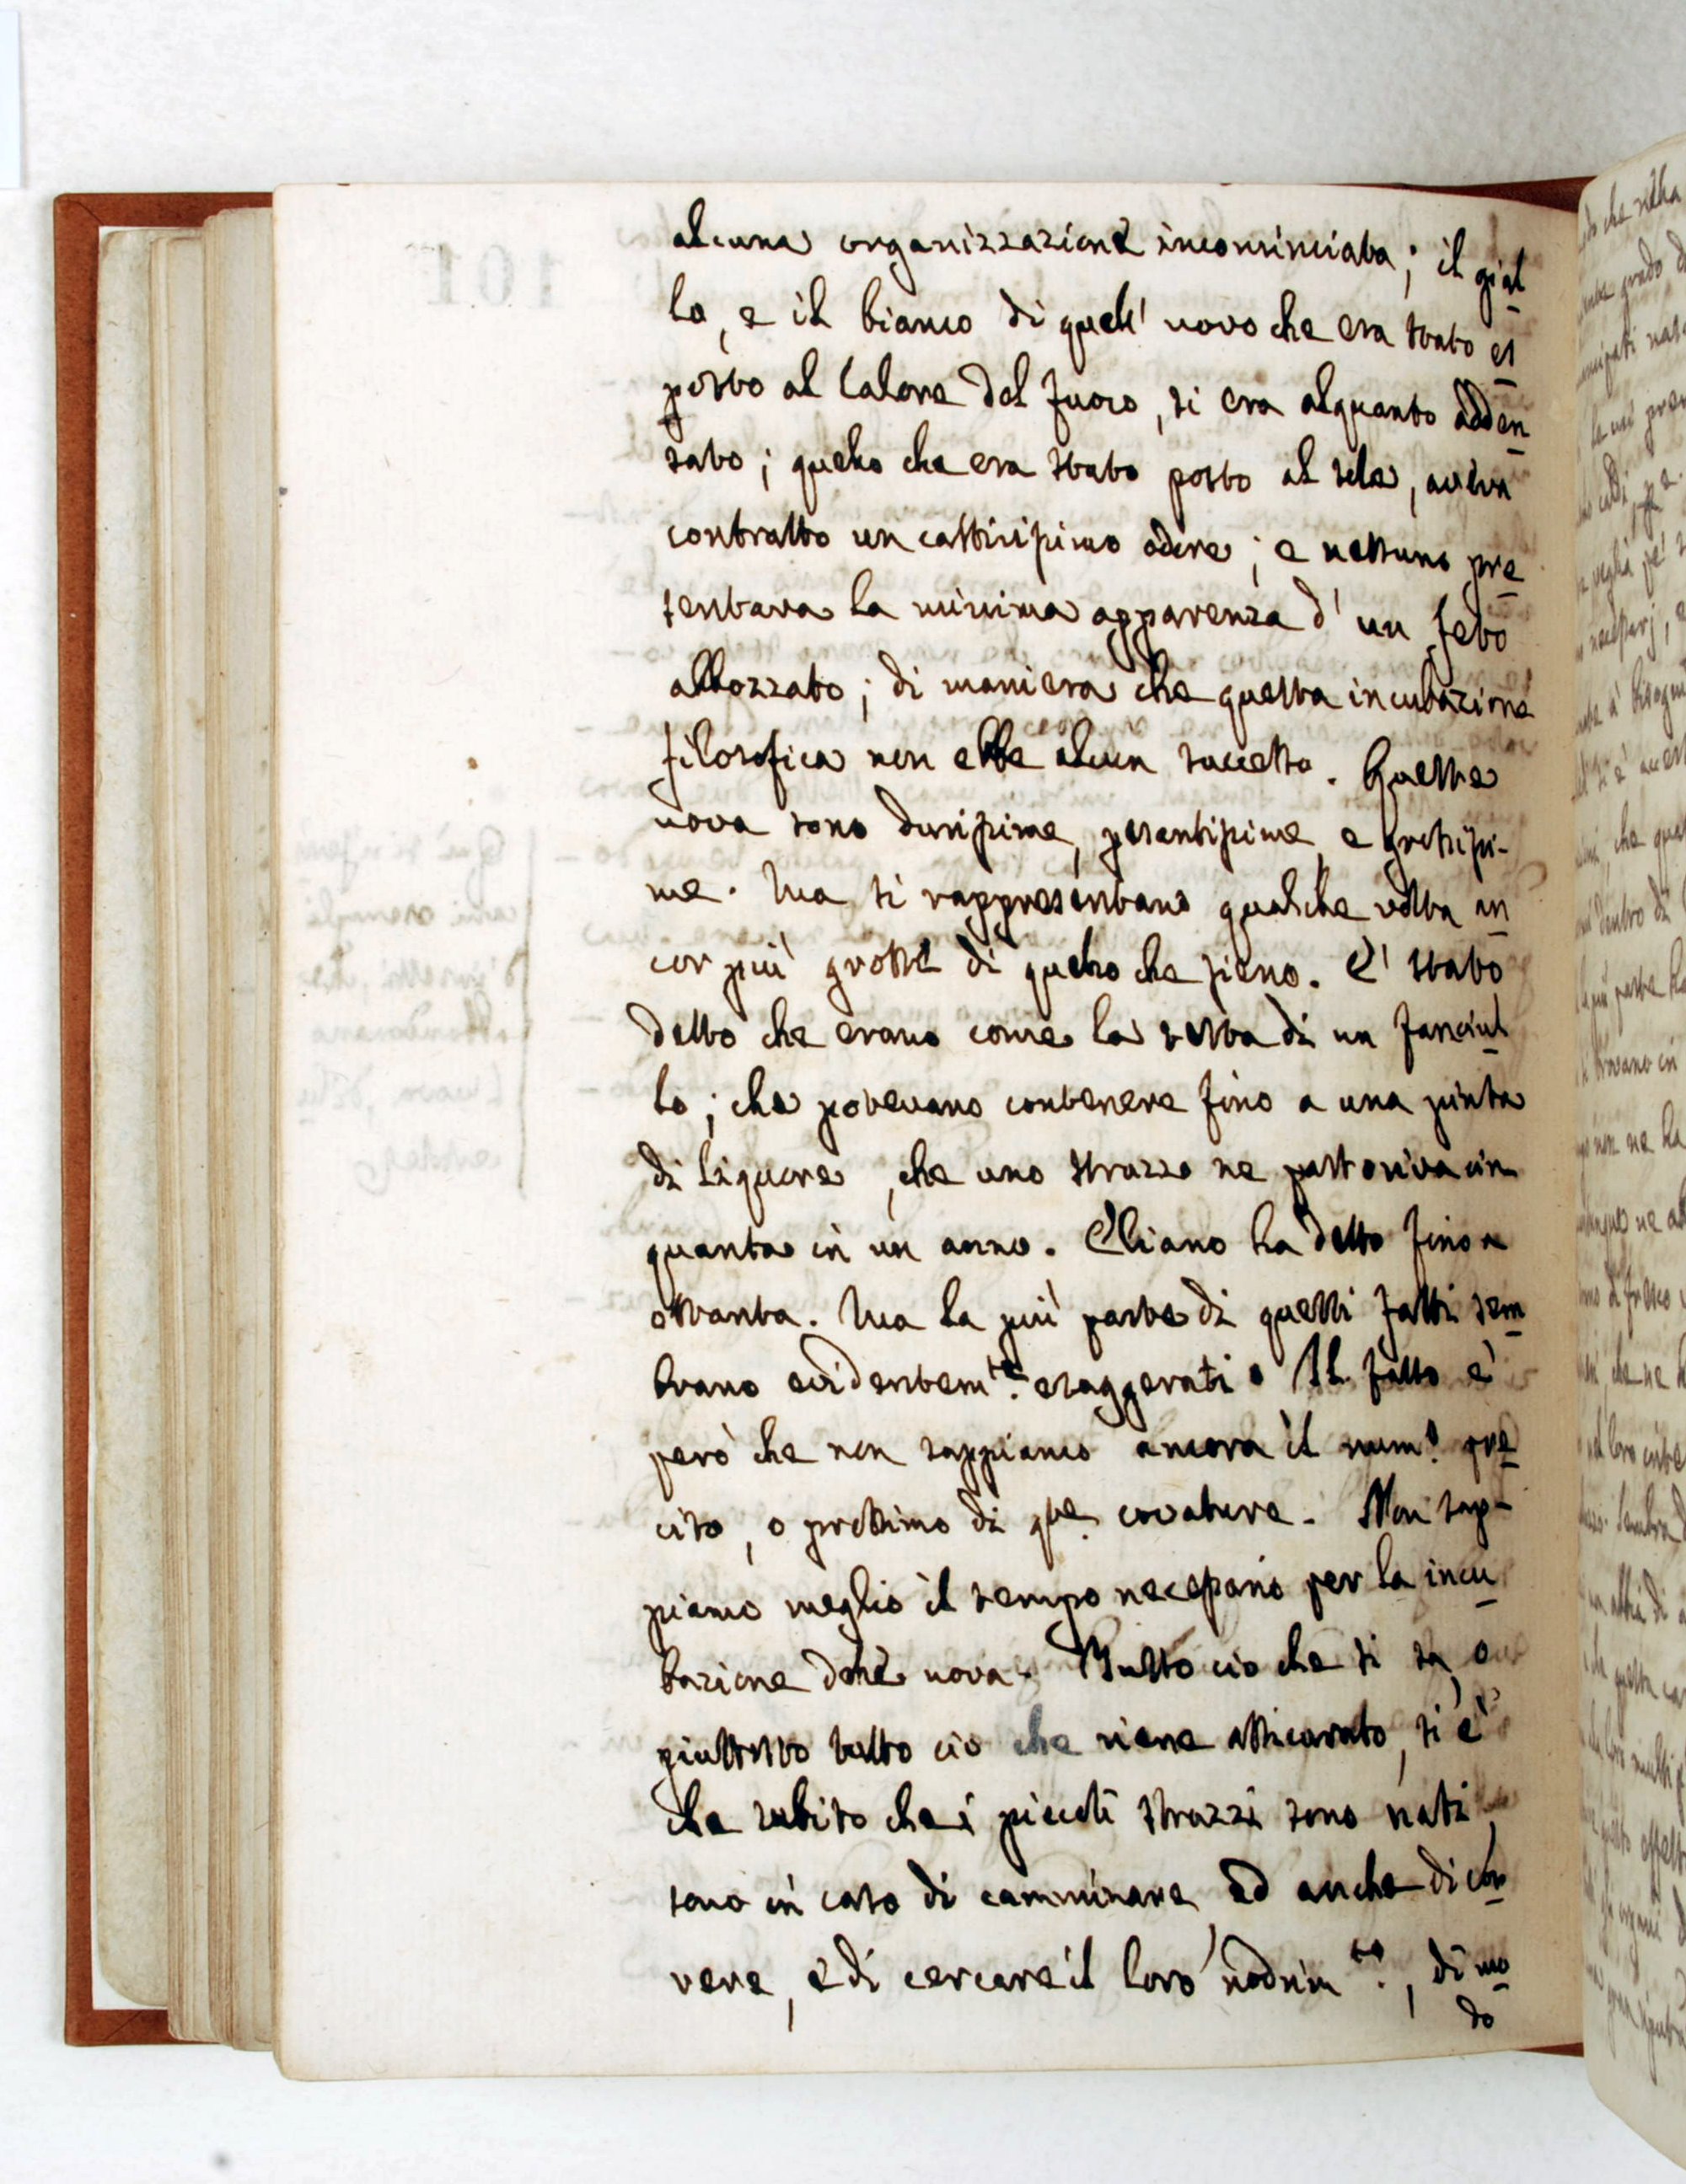 alcuna organizzazione incominciata; il gial
lo, e il bianco di quell' uovo che era stato es
posto al Calore del fuoco, si era alquanto adden
sato; quello che era stato posto al sole, aveva
contratto un cattivissimo odore; e nessuno pre
sentava la minima apparenza d' un feto
abbozzato; di maniera che questa incubazione
filosofica non ebbe alcun successo. Queste
uova sono durissime, pesantissime, e grossissi-
me. Ma si rappresentano qualche volta an
cor più grosse di quello che sieno. E' stato
detto che erano come la testa di un fanciul
lo; che potevano contenere fino a una pinta
di liquore, che uno struzzo ne partoriva cin
quanta in un anno. Eliano ha detto fino a
ottanta. Ma la più parte di questi fatti sem
brano evidentem.te esaggerati. Il fatto è
però che non sappiamo ancora il num.o pre
ciso, o prossimo di q.te covature. Non sap-
piamo meglio il tempo necessario per la incu
bazione delle uova. Tutto ciò che si sa, o
piuttosto tutto ciò che viene assicurato, si è
che subito che i piccoli struzzi sono nati,
sono in caso di camminare, ed anche di cor
rere, e di cercare il loro nodrim.to, di mo
do
101